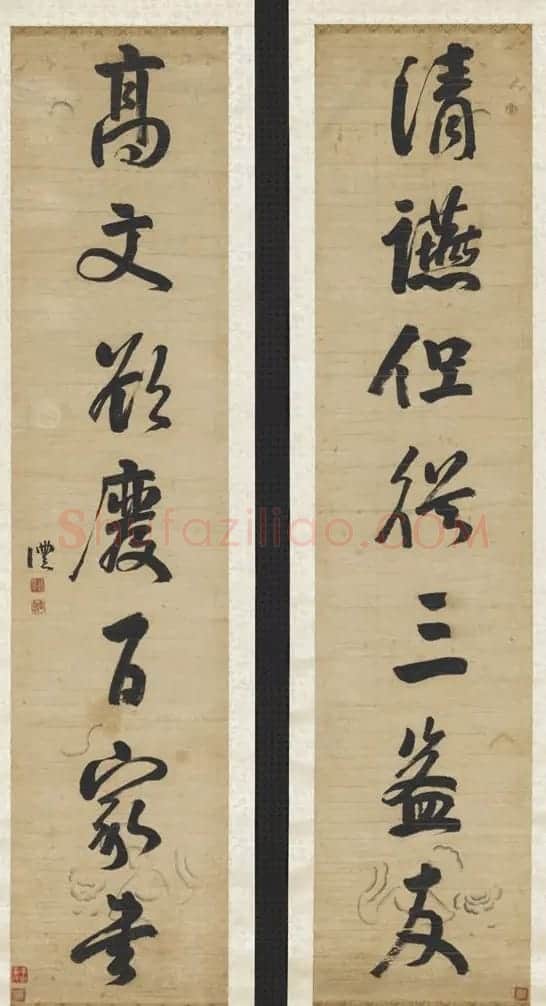 清讌但從三益友
高文欲廢百家書
澧
Shufaziliao.COM